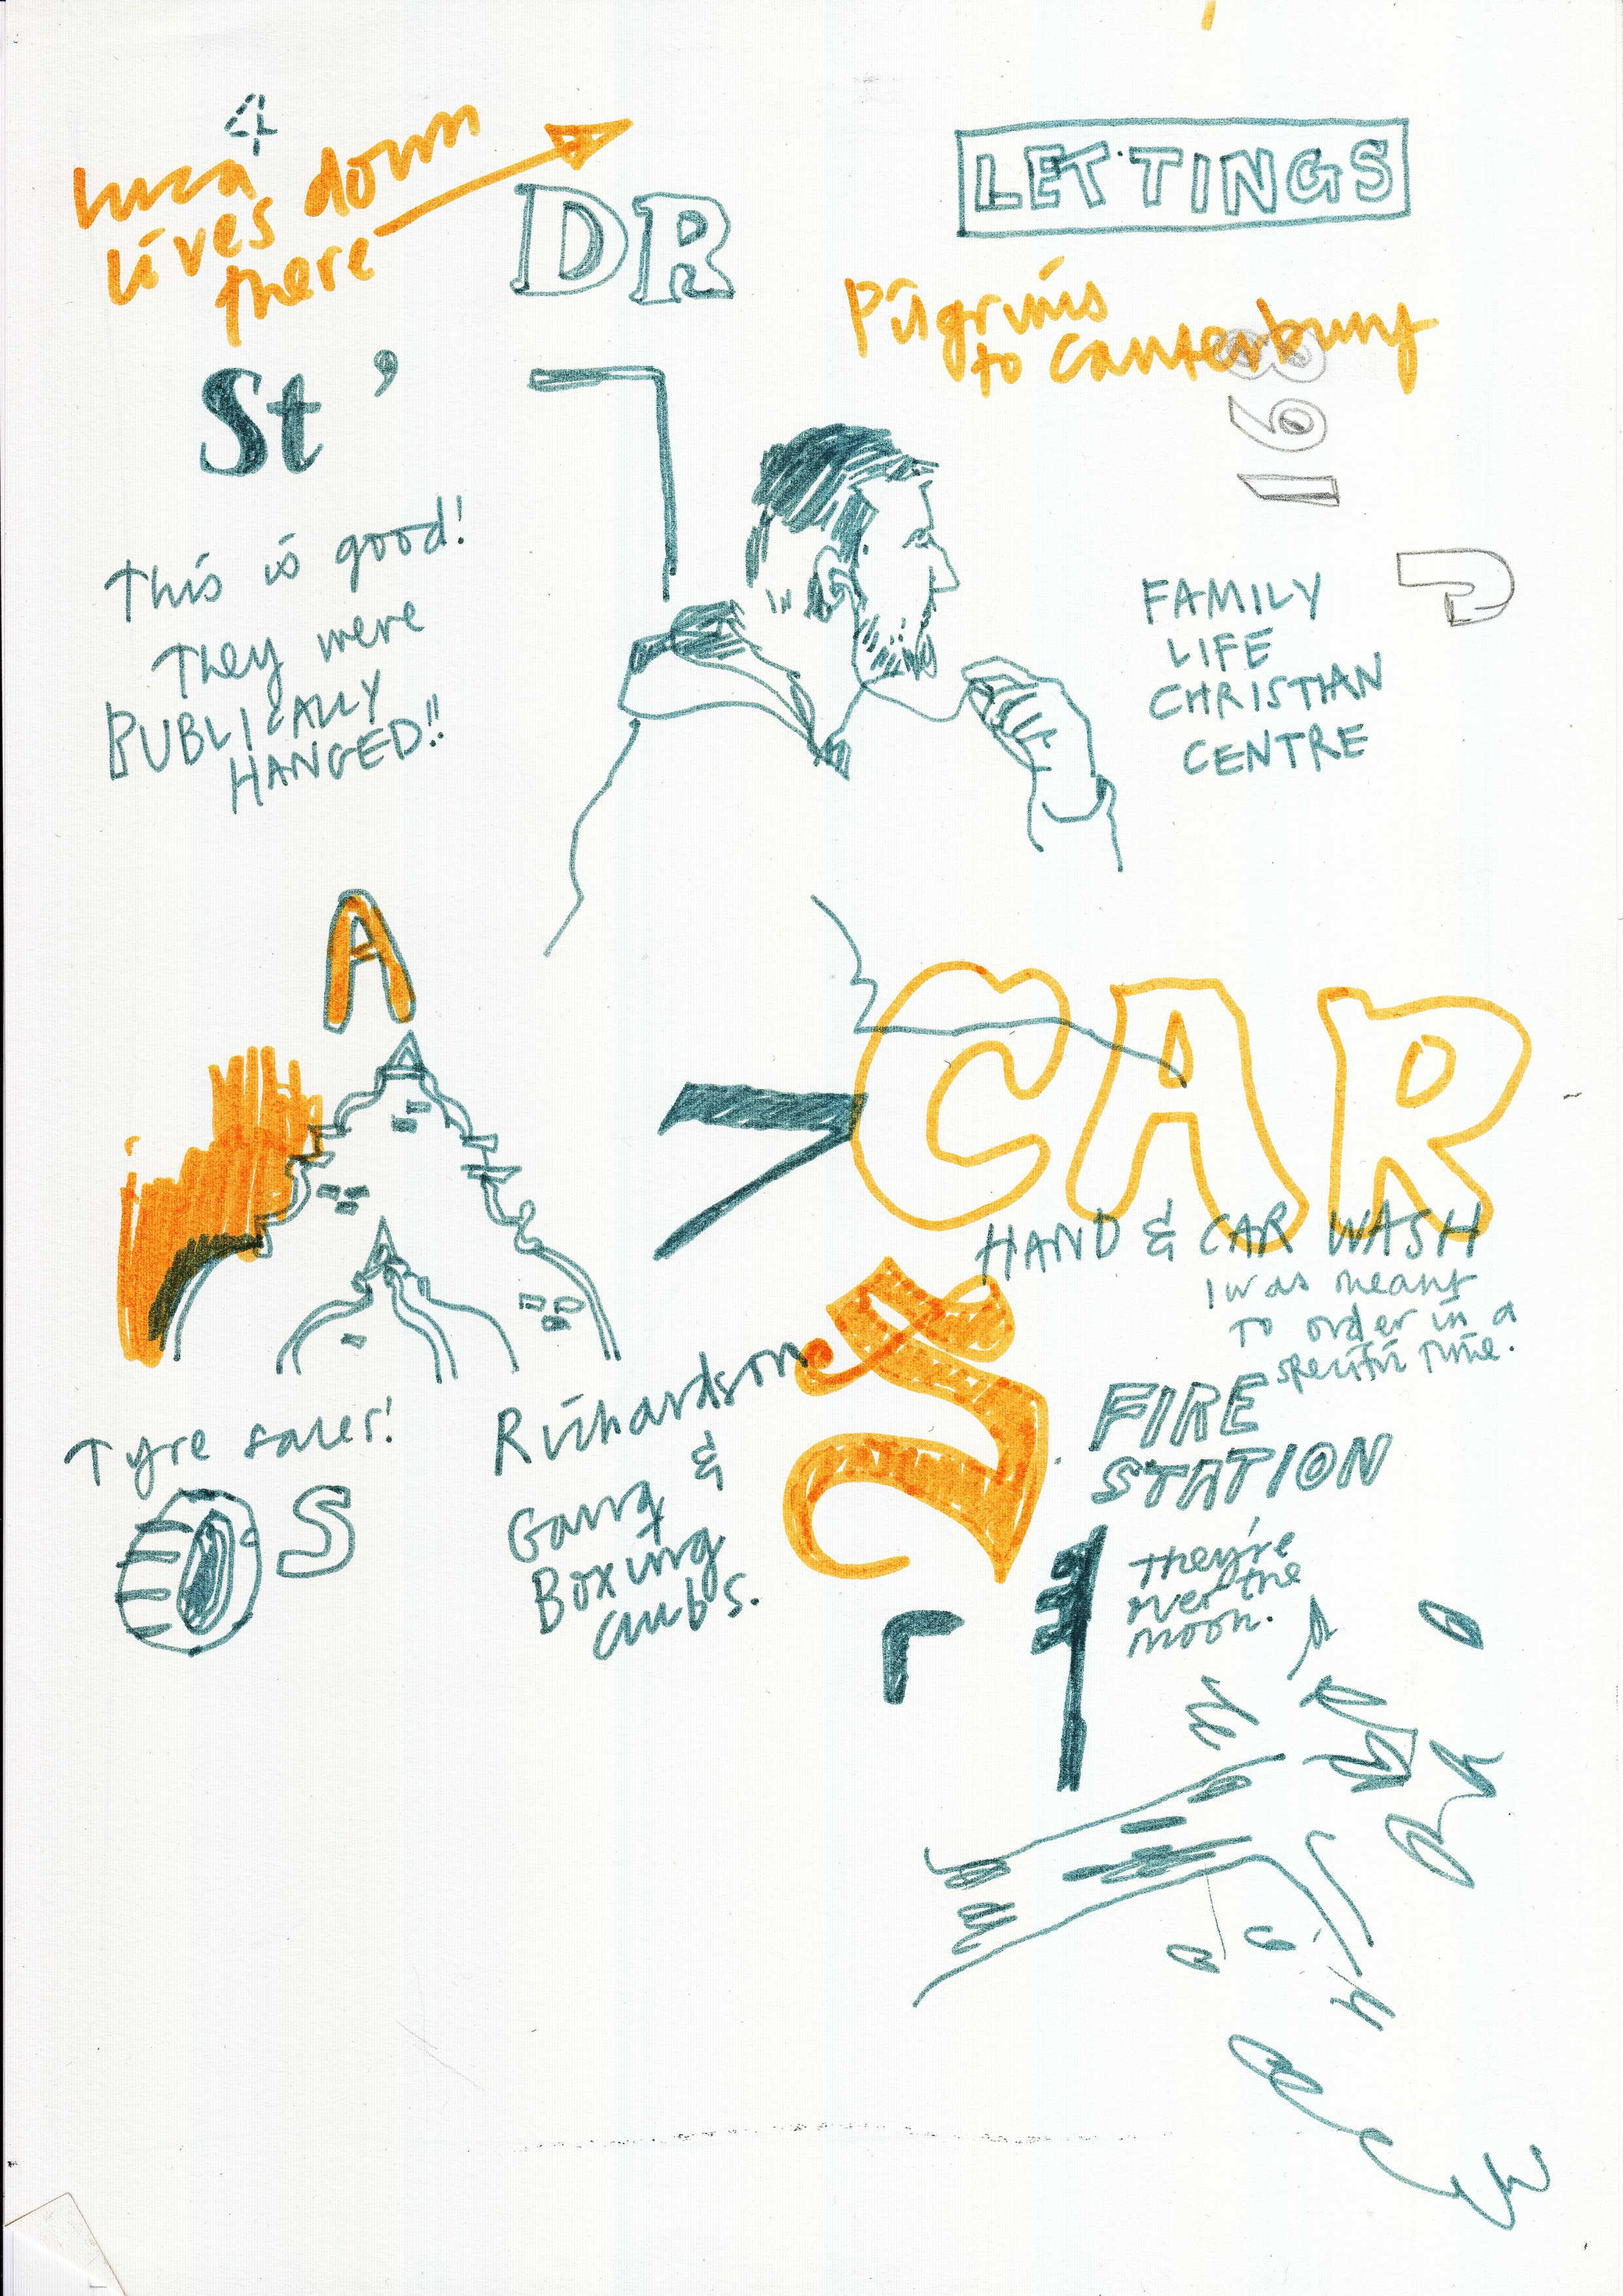 4
Luca
lives down
there
DR
LETTINGS
Pilgrims
to Canterbury
168
St '
This is good!
They were
PUBLICALLY
HANGED!!
FAMILY
LIFE
CHRISTIAN
CENTRE
A
CAR
HAND & CAR WASH
I was meant
to order in a
specific time.
Tyre sales!
S
Richardson
&
Gang
Boxing
clubs.
FIRE
STATION
They're
over the
moon.